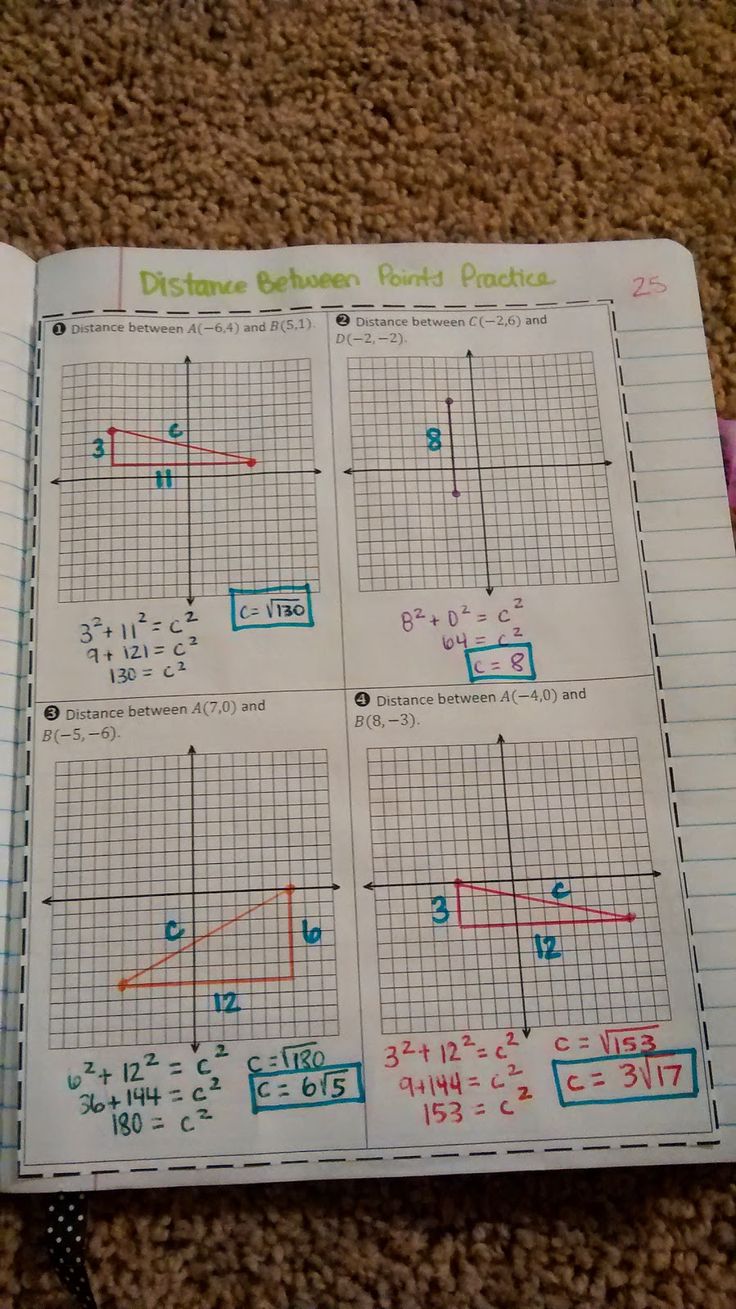 Distance Between Points Practice
25
❶ Distance between A(−6,4) and B(5,1).
3
c
11
3² + 11² = c²
9 + 121 = c²
130 = c²
c = √130
❷ Distance between C(−2,6) and
D(−2,−2).
8
8² + 0² = c²
64 = c²
c = 8
❸ Distance between A(7,0) and
B(−5,−6).
c
6
12
6² + 12² = c²
36 + 144 = c²
180 = c²
c = √180
c = 6√5
❹ Distance between A(−4,0) and
B(8,−3).
3
c
12
3² + 12² = c²
9 + 144 = c²
153 = c²
c = √153
c = 3√17